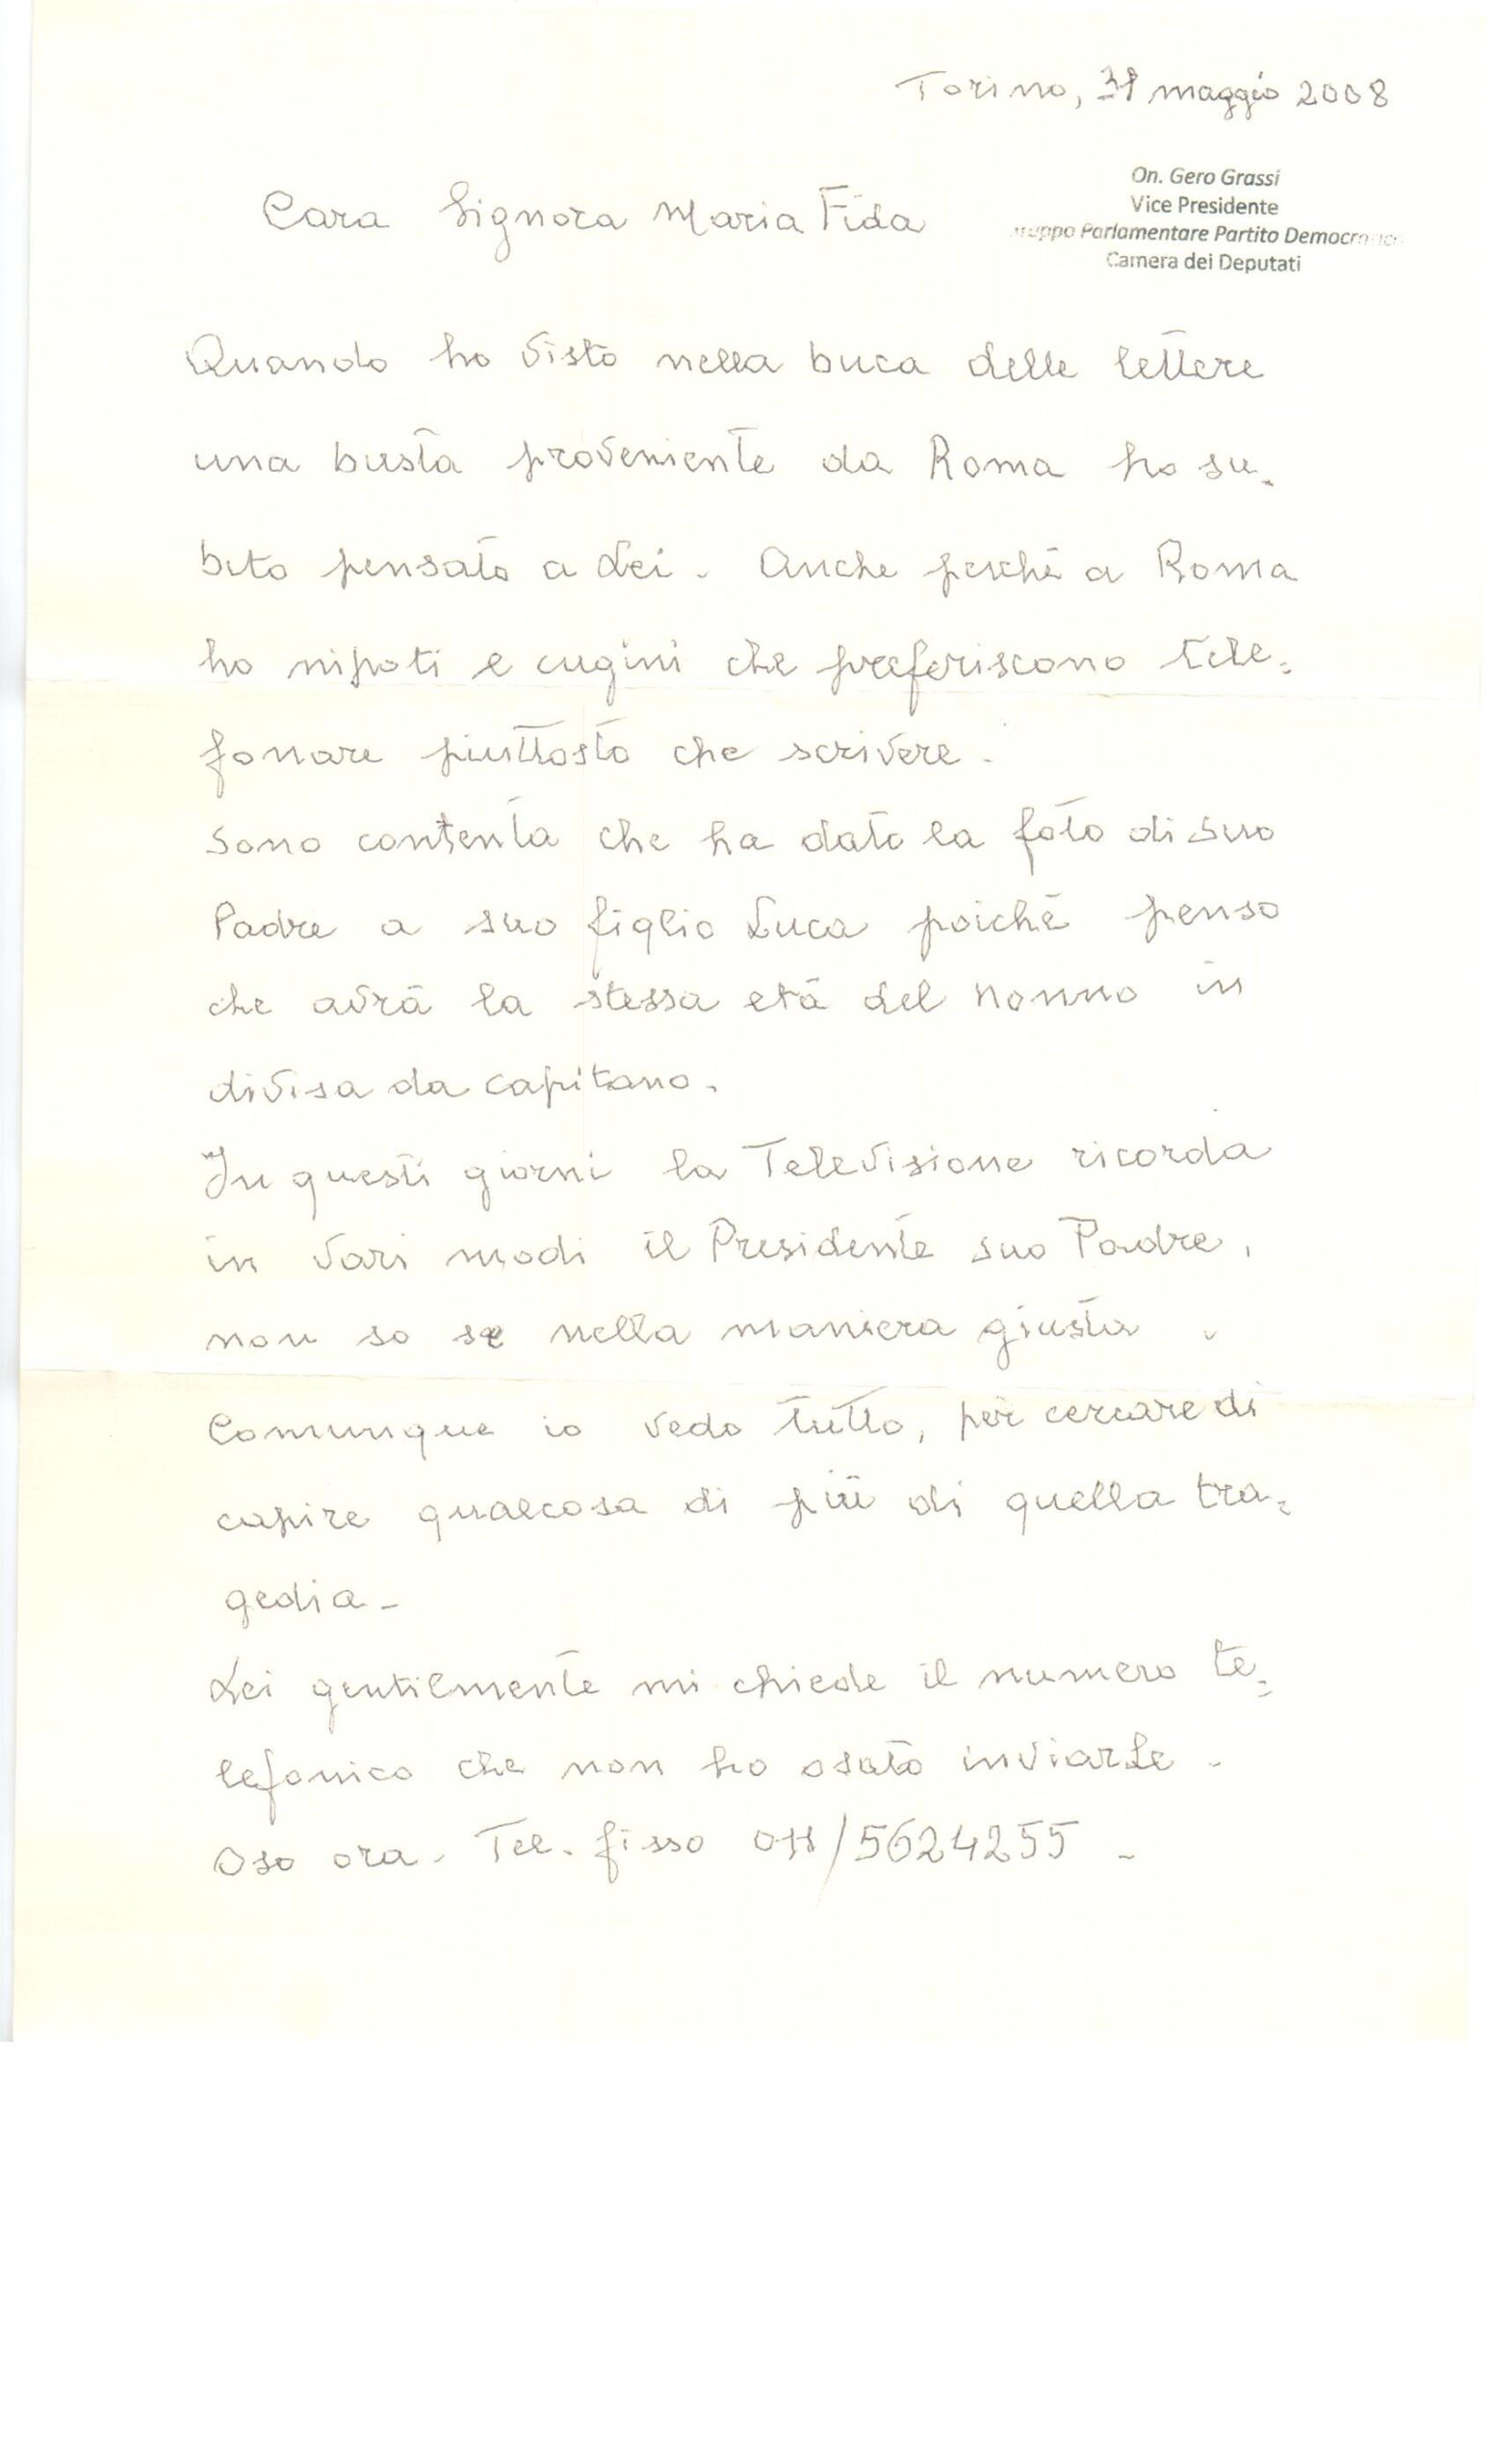 Torino, 31 maggio 2008
On. Gero Grassi
Vice Presidente
Gruppo Parlamentare Partito Democratico
Camera dei Deputati
Cara Signora Maria Fida
Quando ho visto nella buca delle lettere
una busta proveniente da Roma ho su-
bito pensato a Lei. Anche perchè a Roma
ho nipoti e cugini che preferiscono tele-
fonare piuttosto che scrivere.
Sono contenta che ha dato la foto di suo
Padre a suo figlio Luca poichè penso
che avrà la stessa età del nonno in
divisa da capitano.
In questi giorni la Televisione ricorda
in vari modi il Presidente suo Padre,
non so se nella maniera giusta.
Comunque io vedo tutto, per cercare di
capire qualcosa di più di quella tra-
gedia-
Lei gentilmente mi chiede il numero te-
lefonico che non ho osato inviarLe.
Oso ora. Tel. fisso 011/5624255 -